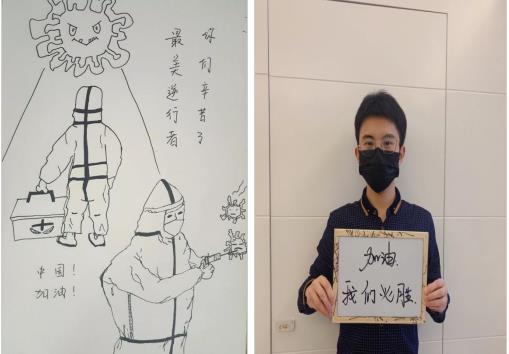 你们辛苦了
最美逆行者
中国！
加油！
加油.
我们必胜.